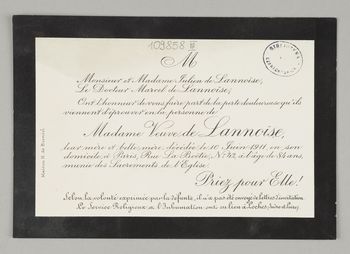 109858 III
M
Monsieur et Madame Julien de Lannoise,
Le Docteur Marcel de Lannoise,
Ont l'honneur de vous faire part de la perte douloureuse qu'ils
viennent d'éprouver en la personne de
Madame Veuve de Lannoise,
leur mère et belle-mère, décédée le 10 Juin 1911, en son
domicile, à Paris, Rue La Boëtie, N° 42, à l'âge de ans,
munie des Sacrements de l'Eglise.
Priez pour Elle!
Selon la volonté exprimée par la défunte, il n'a pas été envoyé de lettres d'invitation.
Le Service Religieux et l'Inhumation ont eu lieu à Loches, Indre et Loire.
Maison H. de Borniol